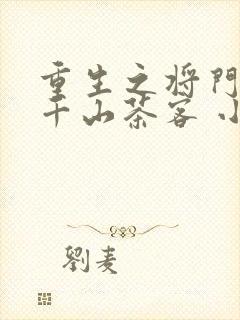 重生之将门
千山茶客 小
劉麦